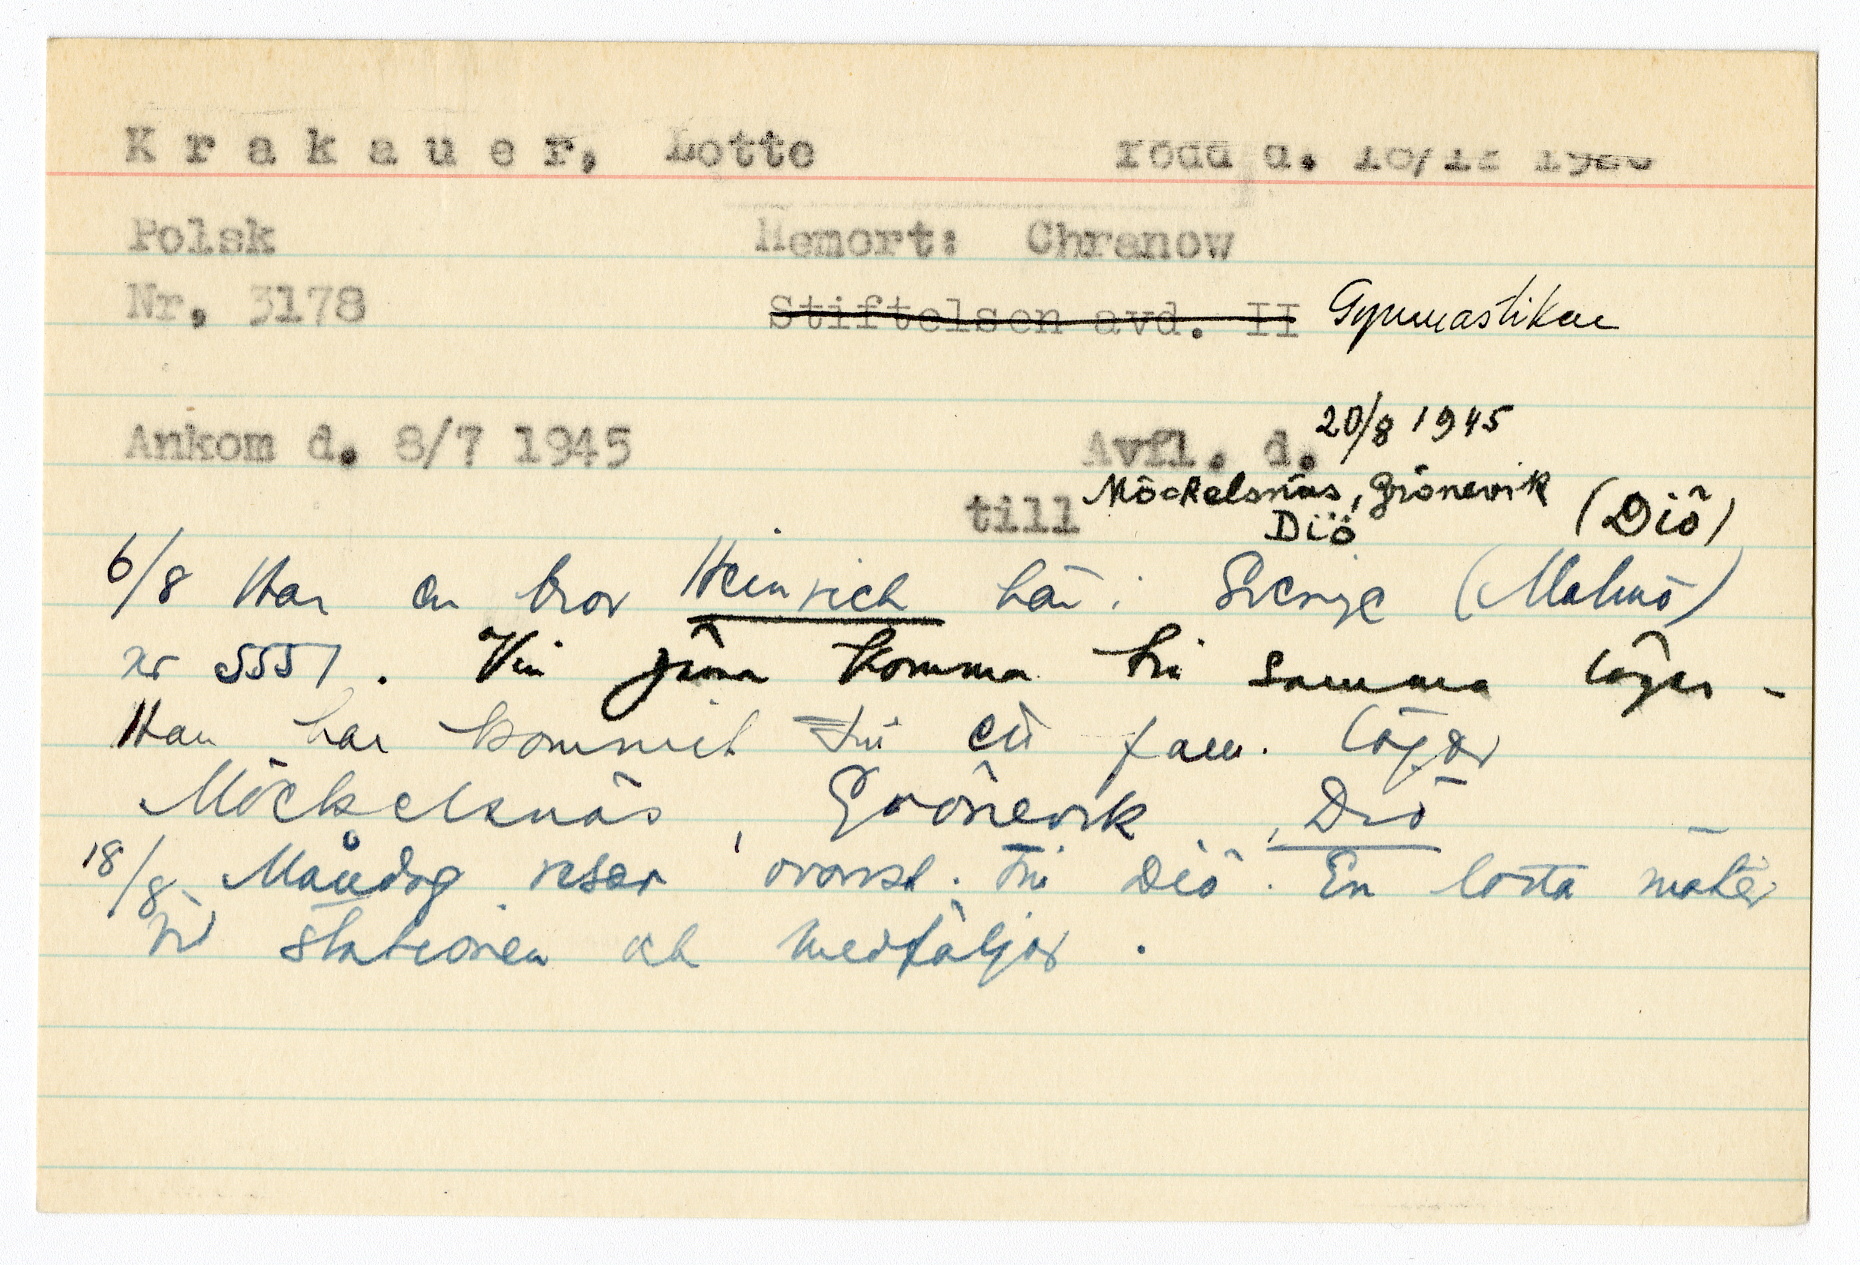 Krakauer, Lotte född d.
Polsk Hemort: Chranow
Nr. 3178 Stiftelsen avd. II Gymnastiken
Ankom d. 8/7 1945 Avfl. d. 20/8 1945
till Möckelsnäs, Grönevik (Diö)
Diö
6/8 Har en bror Heinrich här i Sverige (Malmö)
nr 5551. Vill gärna komma till samma läger -
Han har kommit till ett fam. läger
Möckelsnäs, Grönevik, Diö -
18/8 Måndag reser ovanst. till Diö. En lotta möter
vid stationen och medföljer.